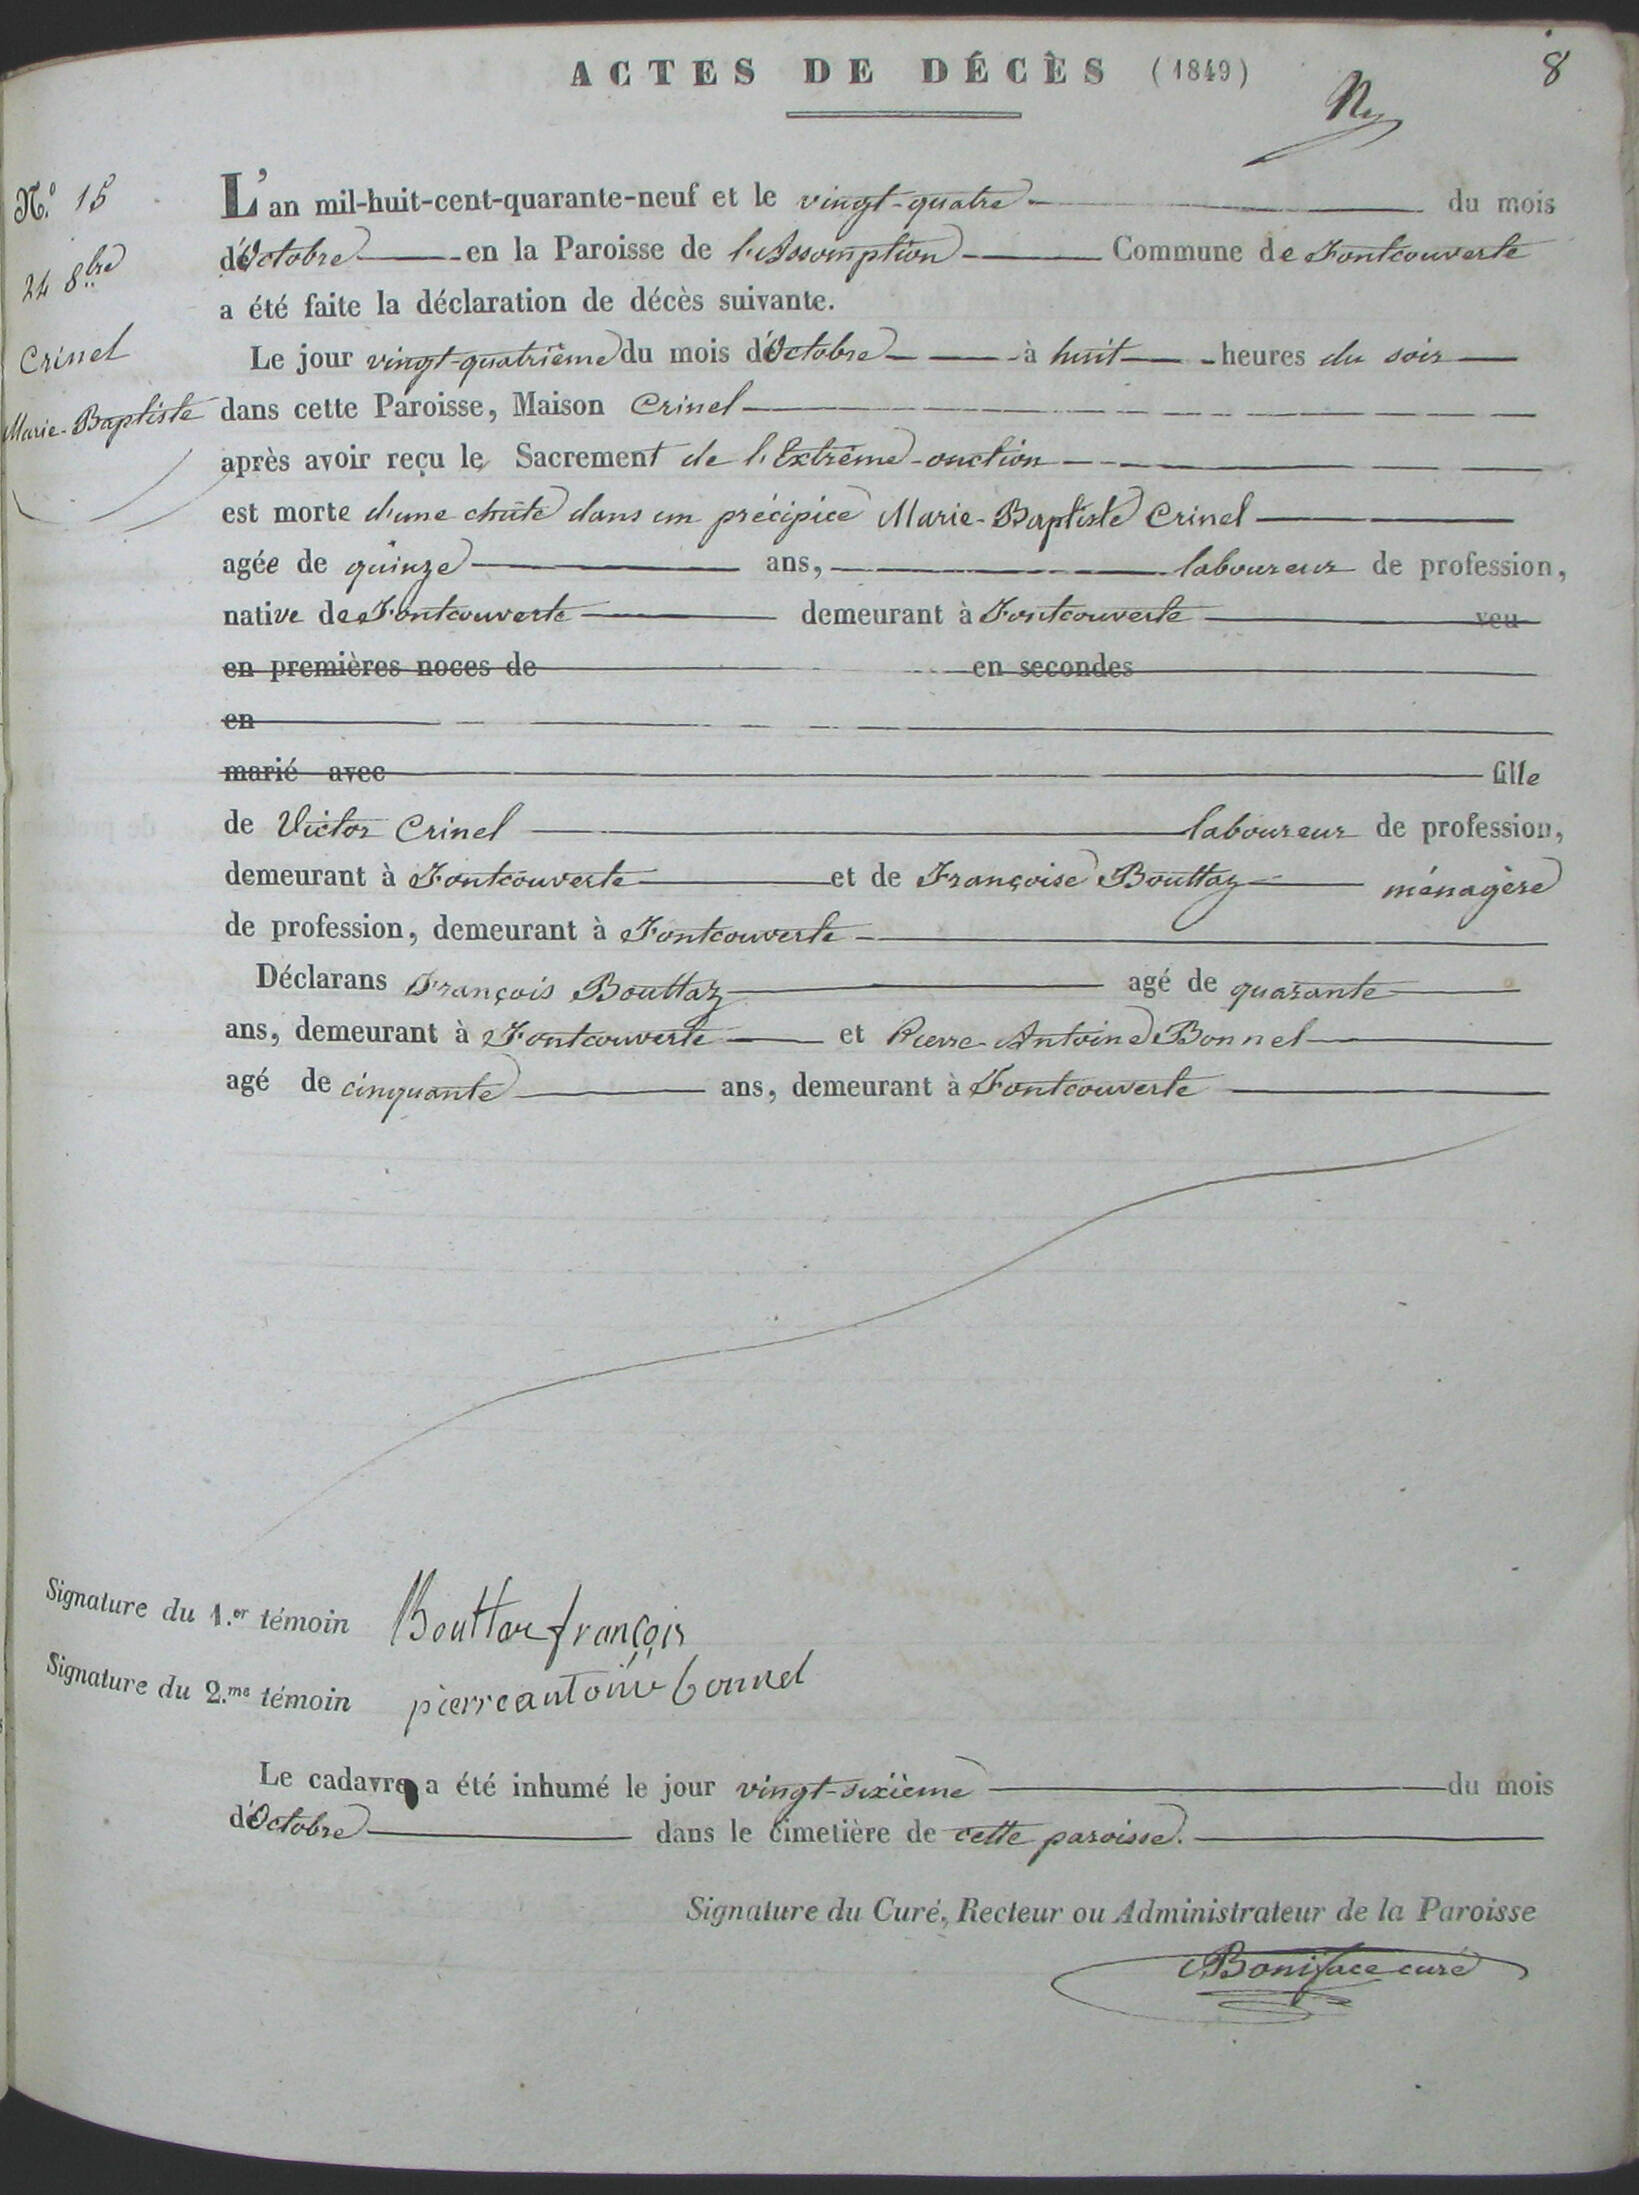 ACTES DE DÉCÈS (1849)
8
N.º 15
24 8.bre
Crinel
Marie-Baptiste
L'an mil-huit-cent-quarante-neuf et le vingt-quatre du mois
d'Octobre en la Paroisse de l'Assomption Commune de Fontcouverte
a été faite la déclaration de décès suivante.
Le jour vingt-quatrième du mois d'Octobre à huit heures du soir
dans cette Paroisse, Maison Crinel
après avoir reçu le Sacrement de l'Extrême-onction
est morte d'une chûte dans un précipice Marie-Baptiste Crinel
agée de quinze ans, laboureur de profession,
native de Fontcouverte demeurant à Fontcouverte veu
en premières noces de en secondes
en
marié avec fille
de Victor Crinel laboureur de profession,
demeurant à Fontcouverte et de Françoise Bouttaz ménagère
de profession, demeurant à Fontcouverte
Déclarans François Bouttaz agé de quarante
ans, demeurant à Fontcouverte et Pierre-Antoine Bonnel
agé de cinquante ans, demeurant à Fontcouverte
Signature du 1.er témoin Bouttaz françois
Signature du 2.me témoin pierre antoine bonnel
Le cadavre a été inhumé le jour vingt-sixième du mois
d'Octobre dans le cimetière de cette paroisse.
Signature du Curé, Recteur ou Administrateur de la Paroisse
Boniface curé